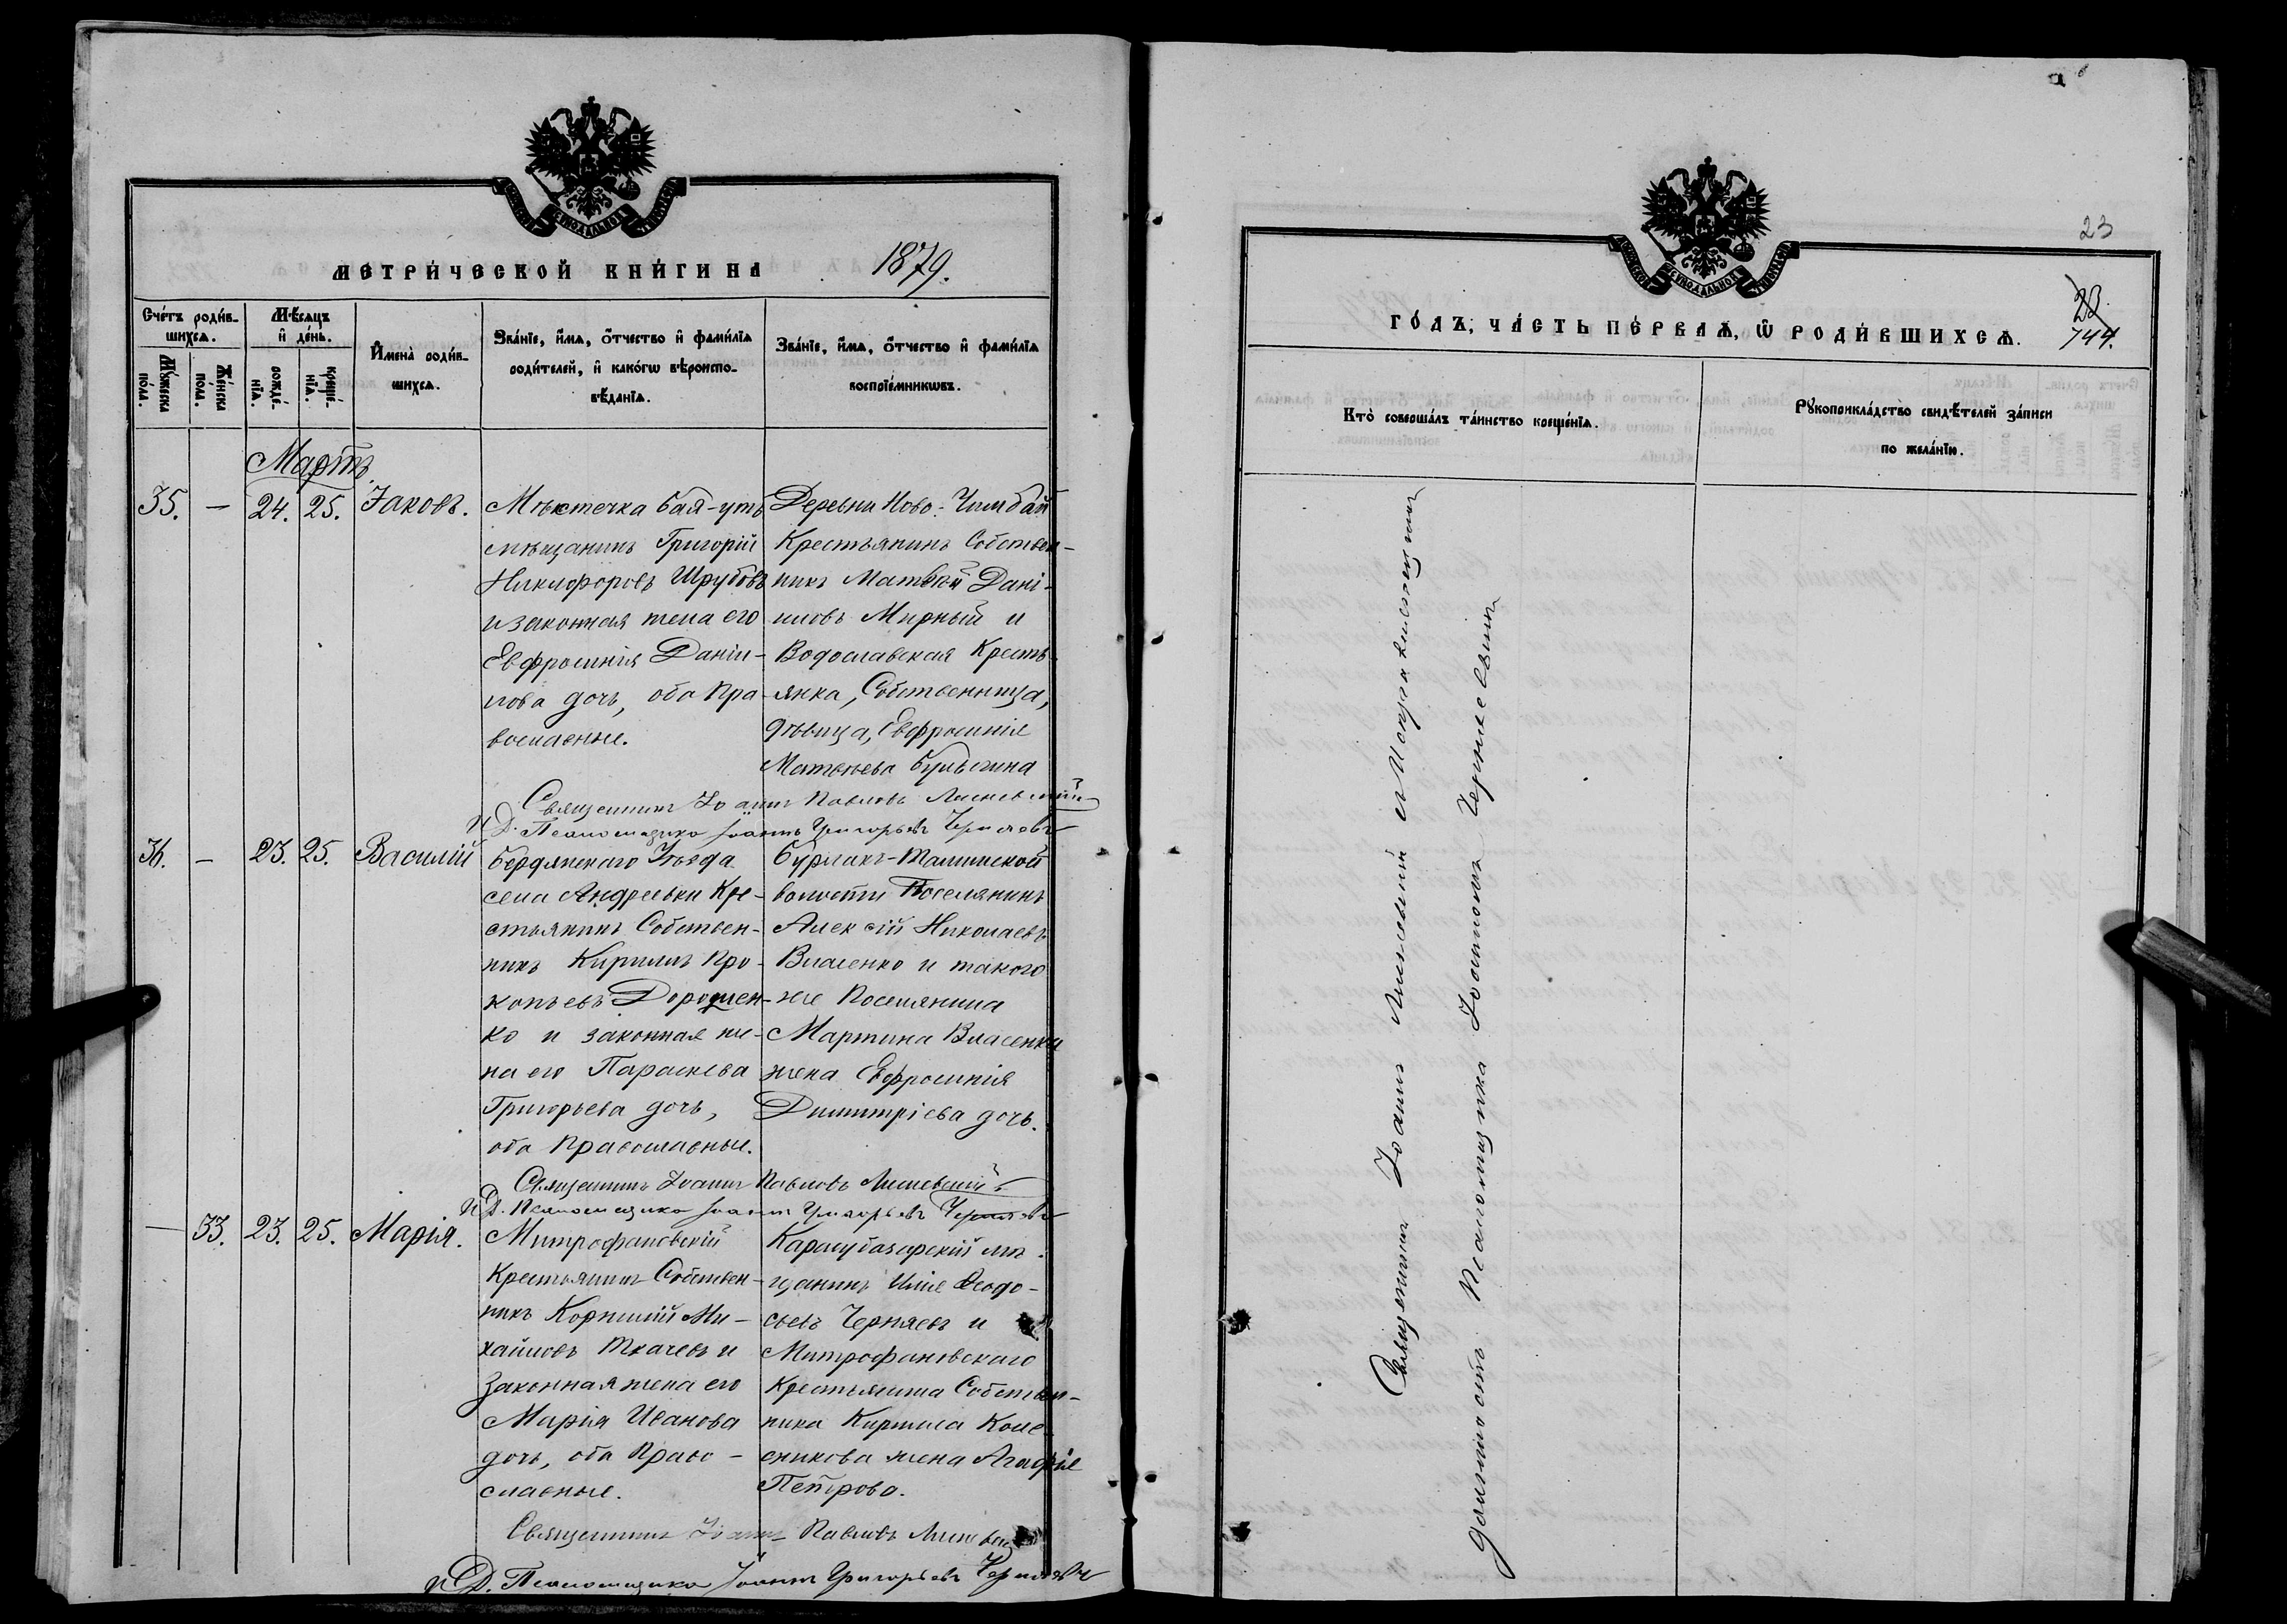 МЕТРИ́ЧЕСКОЙ КНИ́ГИ НА 1879.
Сче́тъ роди́в-
шихсѧ.
Мѹ́жеска
по́ла.
Же́нска
по́ла.
Мѣ́сѧцъ
и҆ де́нь.
рожде́-
нїѧ.
креще́-
нїѧ.
И҆мена̀ роди́в-
шихсѧ.
Зва́нїе, и҆́мѧ, ѻ҆́тчество и҆ фами́лїѧ
роди́телей, и҆ како́гѡ вѣроиспо-
вѣ́данїѧ.
Зва́нїе, и҆́мѧ, ѻ҆́тчество и҆ фами́лїѧ
воспрїе́мникѡвъ.
Мартъ
35. — 24. 25. Іаковъ.
Мѣстечка Бая-утъ
мѣщанинъ Григорій
Никифоровъ Шрубовъ
и законная жена его
Евфросинія Даніи-
лова дочь, оба Пра-
вославные.
Деревни Ново-Чимбай
Крестьянинъ Собствен-
никъ Матвѣй Дані-
иловъ Мирный и
Водославская Кресть-
янка, Собственница,
дѣвица, Евфросинія
Матвѣева Булыгина
Священникъ Іоаннъ Павловъ Лисневскій
И Д. Псаломщика Іоаннъ Григорьевъ
36. — 23. 25. Василій
Бердянскаго Уѣзда
села Андреевки Кре-
стьянинъ Собствен-
никъ Кириллъ Про-
копьевъ Дорошен-
ко и законная же-
на его Параскева
Григорьева дочь,
оба Православные.
Бурлакъ-Тамакской
волости Поселянинъ
Алексій Николаевъ
Власенко и такого
же Поселянина
Мартина Власенка
жена Евфросинія
Димитріева дочь.
Священникъ Іоаннъ Павловъ Лисневскій
И Д. Псаломщика Іоаннъ Григорьевъ
— 33. 23. 25. Марія.
Митрофановскій
Крестьянинъ Собствен-
никъ Корнилій Ми-
хайловъ Ткачевъ и
Законная жена его
Марія Иванова
дочь, оба Право-
славные.
Карасубазарскій мѣ-
щанинъ Илія Ѳеодо-
сьевъ Черняевъ и
Митрофановскаго
Крестьянина Собствен-
ника Кирилла Коле-
сникова жена Агафія
Петрова.
Священникъ Іоаннъ Павловъ
И Д. Псаломщика Іоаннъ Григорьевъ
23
23
744.
ГО́ДЪ, ЧА́СТЬ ПЕ́РВАѦ, Ѡ҆ РОДИ́ВШИХСѦ.
Кто̀ соверша́лъ та́инство креще́нїѧ.
Рꙋкоприкла́дство свидѣ́телей за́писи
по жела́нїю.
Священникъ Іоаннъ Лисневскій съ Исправляющимъ
должность Псаломщика Іоанномъ